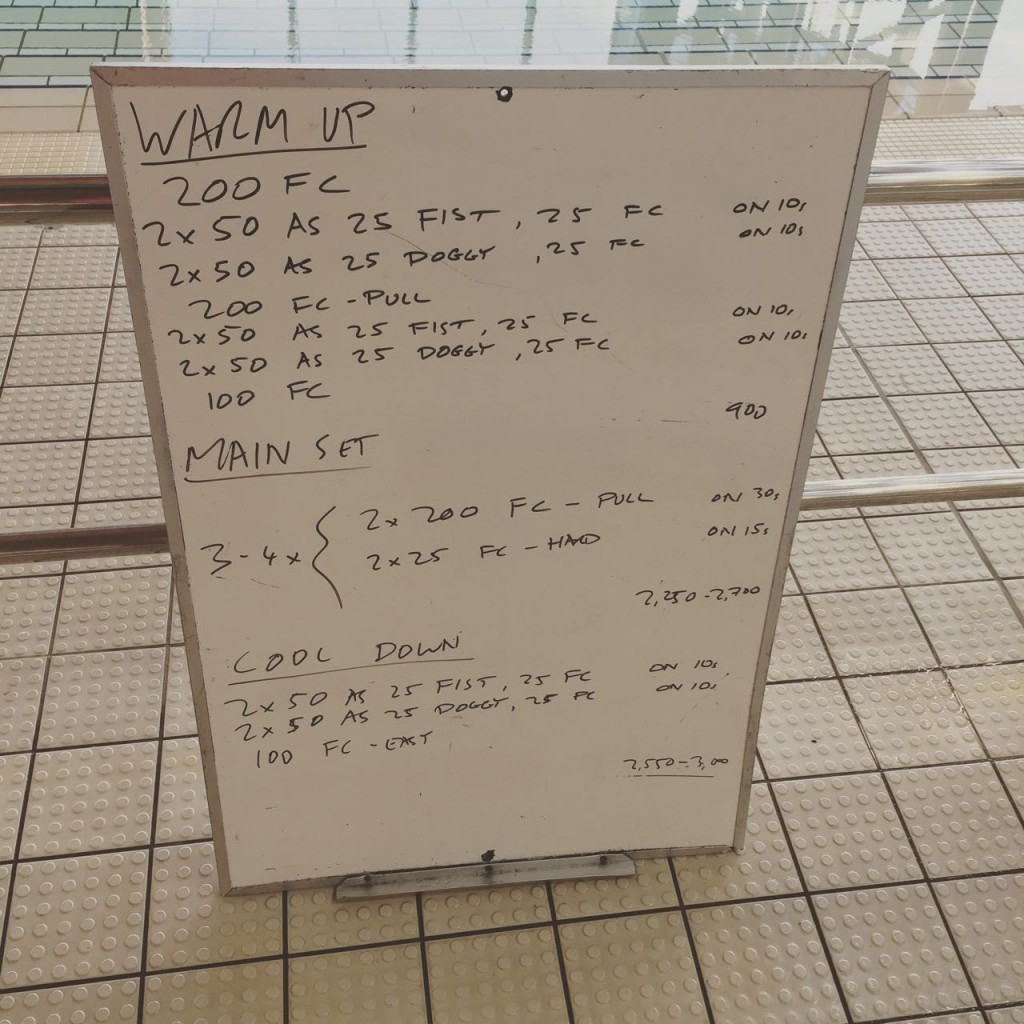 WARM UP
200 FC
2x50 AS 25 FIST, 25 FC ON 10s
2x50 AS 25 DOGGY, 25 FC ON 10s
200 FC - PULL
2x50 AS 25 FIST, 25 FC ON 10s
2x50 AS 25 DOGGY, 25 FC ON 10s
100 FC
900
MAIN SET
3-4x { 2x200 FC - PULL ON 30s
2x25 FC - HARD ON 15s
2,250-2,700
COOL DOWN
2x50 AS 25 FIST, 25 FC ON 10s
2x50 AS 25 DOGGY, 25 FC ON 10s
100 FC - EASY
2,550-3,00